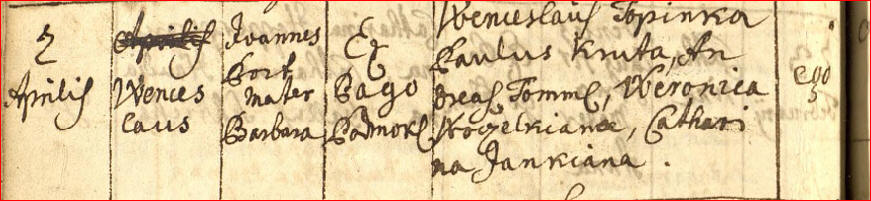 2
Aprilis
Wences
laus
Joannes
Bort
mater
Barbara
Ex
Pago
Podmokl
Wenceslaus Topinka
Paulus Kruta, An
dreas Tomme, Weronica
Kogelkiana, Cathari
na Jankiana.
Ego